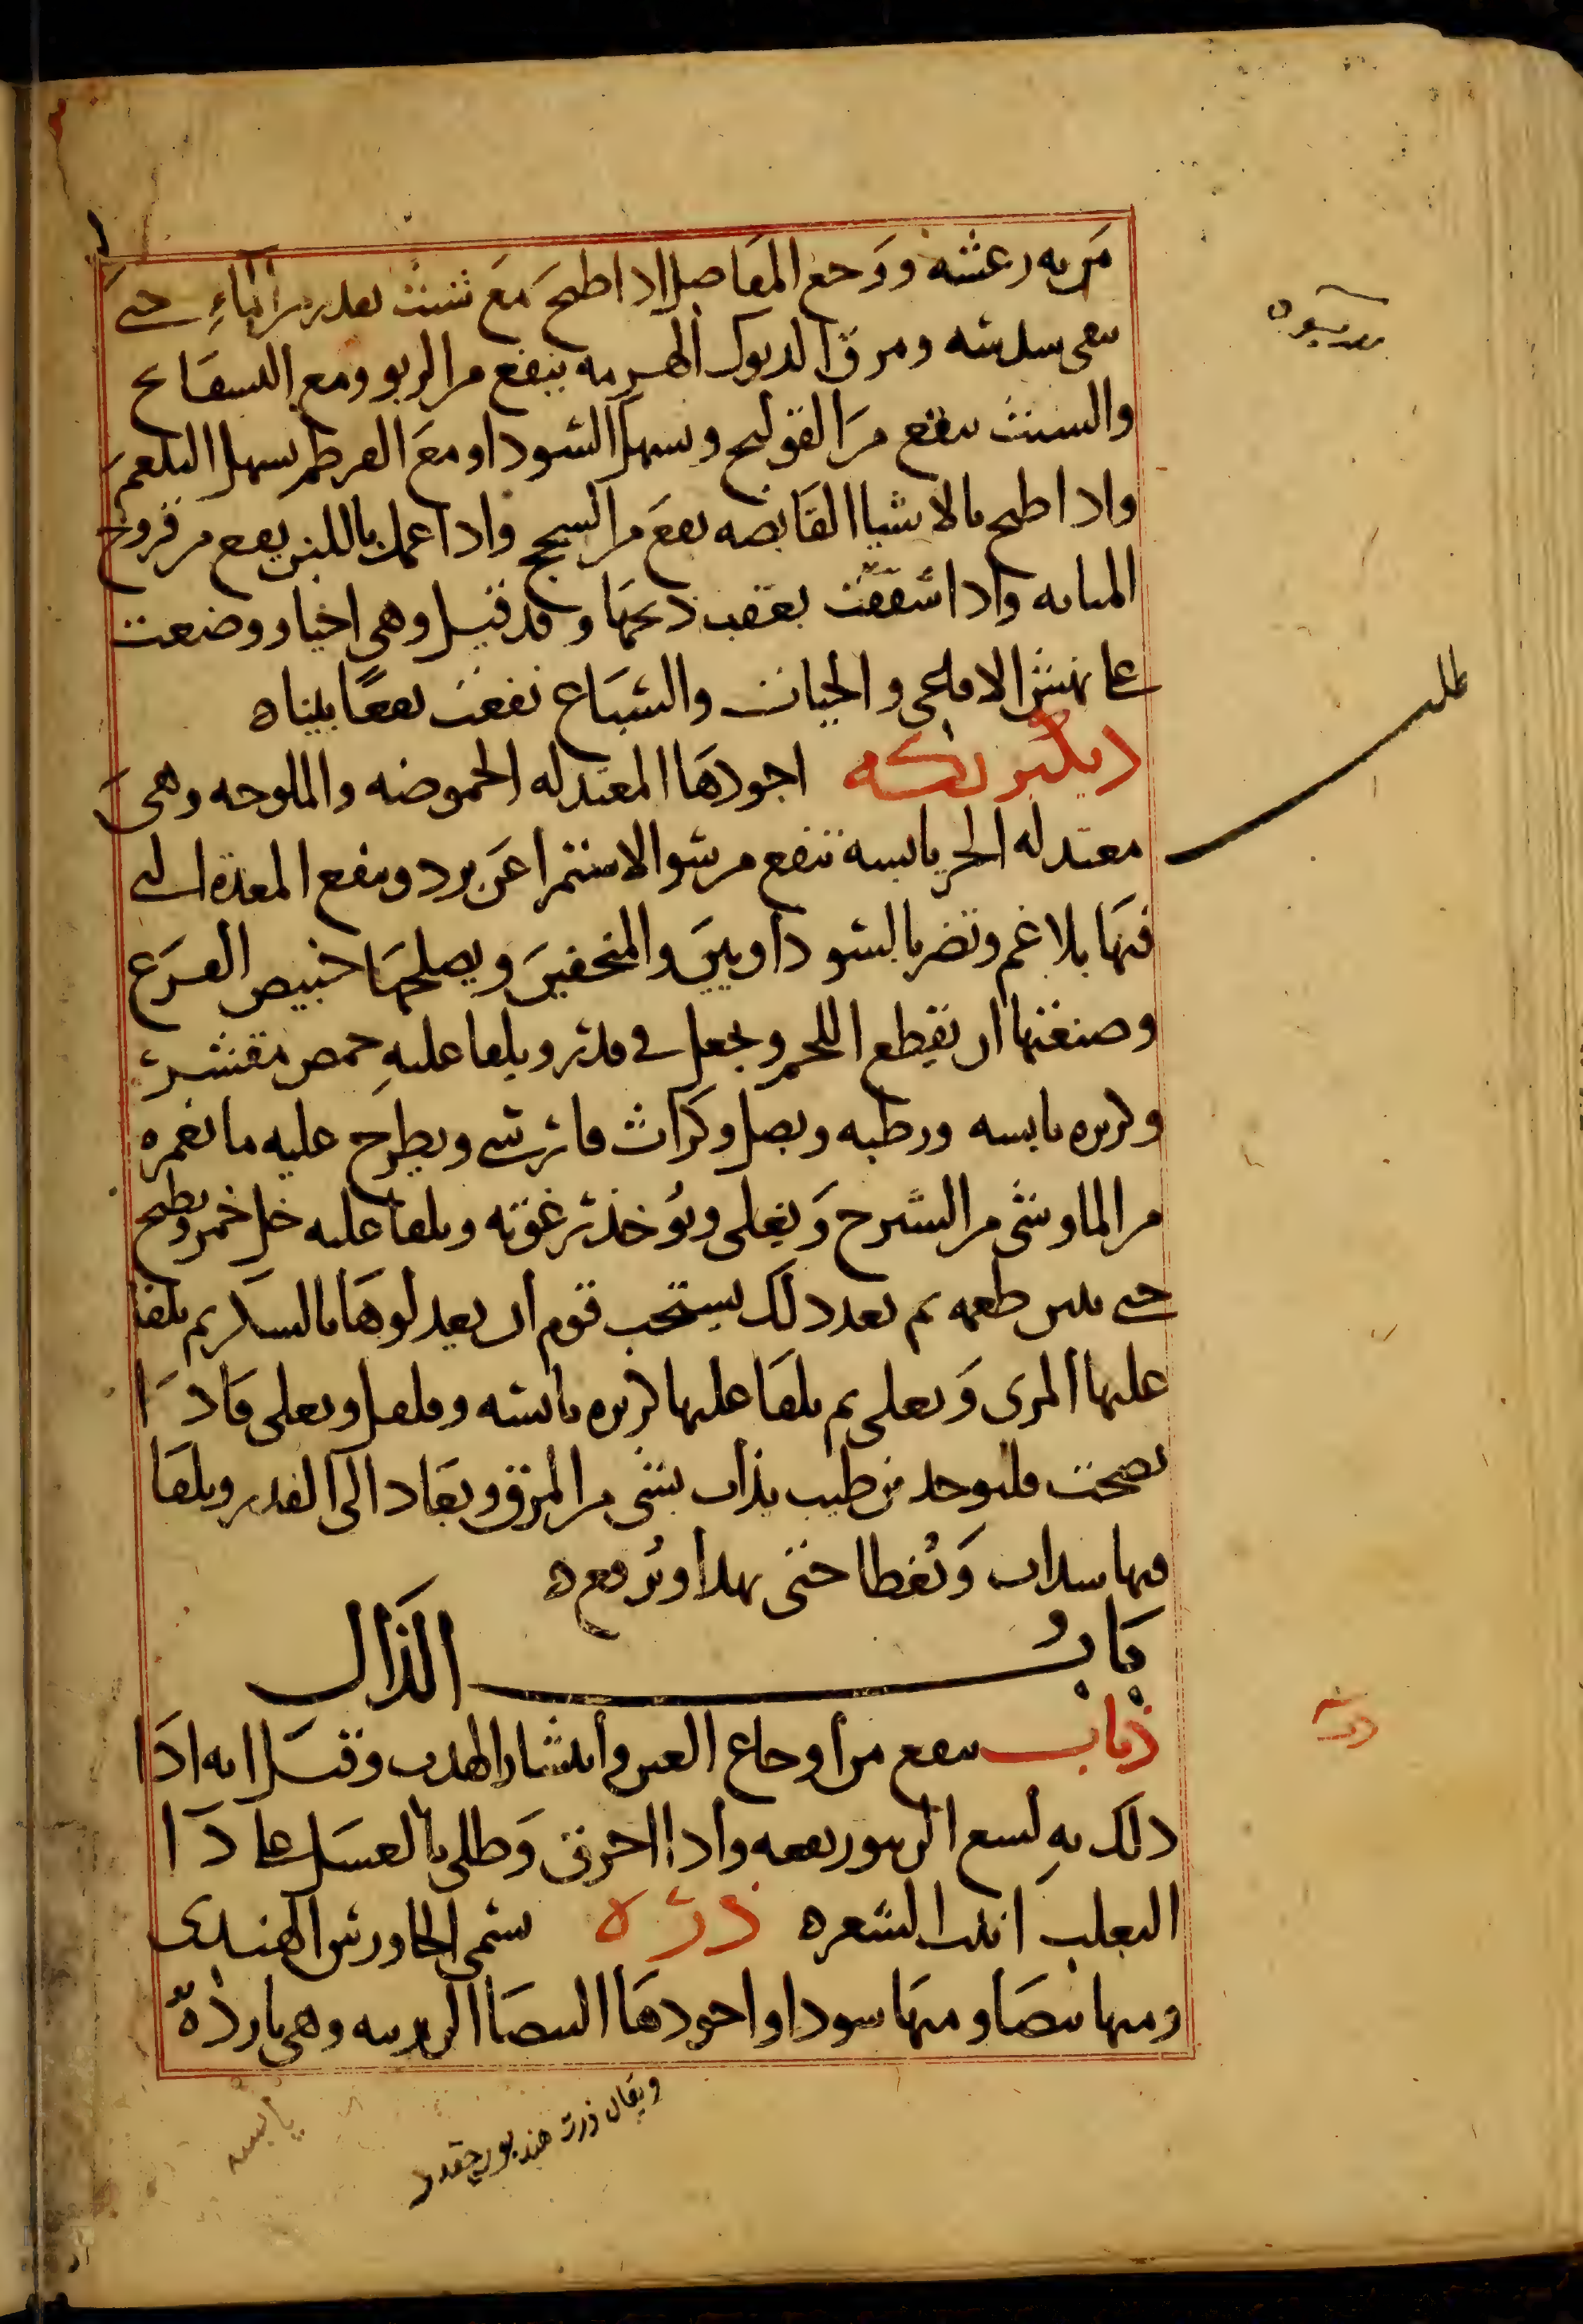 من به رعشه ووجع المفاصل اذا طبخ مع شبث بقدر من الماء حتى
يبقى سدسه ومرق الديوك الهرمه ينفع من الربو ومع البسفايج
والشبث ينفع من القولنج ويسهل السودا ومع القرطم يسهل البلغم
واذا طبخ بالاشيا القابضه نفع من السحج واذا عمل باللبن نفع من قروح
المثانه واذا شققت بعقب ذبحها وقد قيل وهى احيا ووضعت
على نهش الافاعى والحيات والسباع نفعت نفعا بينا ه
ديكبريكه اجودها المعتدله الحموضه والملوحه وهى
معتدله الحر يابسه تنفع من سو الاستمرا عن برد وتنفع المعدة التى
فيها بلاغم وتضر بالسوداويين والمنحفين ويصلحها خبيص القرع
وصنعتها ان يقطع اللحم ويجعل فى قدر ويلقا عليه حمص مقشر
وكزبره يابسه ورطبه وبصل وكراث فارسى ويطرح عليه ما يغمره
من الما وشى من الشيرج ويغلى ويؤخذ رغوته ويلقا عليه خل خمر ويطبخ
حتى يتبين طعمه ثم بعد ذلك يستحب قوم ان يعدلوها بالسكر ثم يلقا
عليها المرى ويغلى ثم يلقا عليها كزبره يابسه وفلفل ويغلى فاذا
نضجت فليوخد من طيب يذاب بشى من المرق ويعاد الى القدر ويلقا
فيها سداب وتغطا حتى يهدا وترفع ه
باب الذال
ذباب ينفع من اوجاع العين وانتشار الهدب وقيل انه اذا
دلك به لسع الزنبور نفعه واذا احرق وطلى بالعسل على دا
الثعلب انبت الشعره ذره يسمى الجاورس الهندى
ومنها بيضا ومنها سودا واجودها البيضا الرزينه وهى بارده
طلب
ذرت
ويقال ذرت هند
يابسه